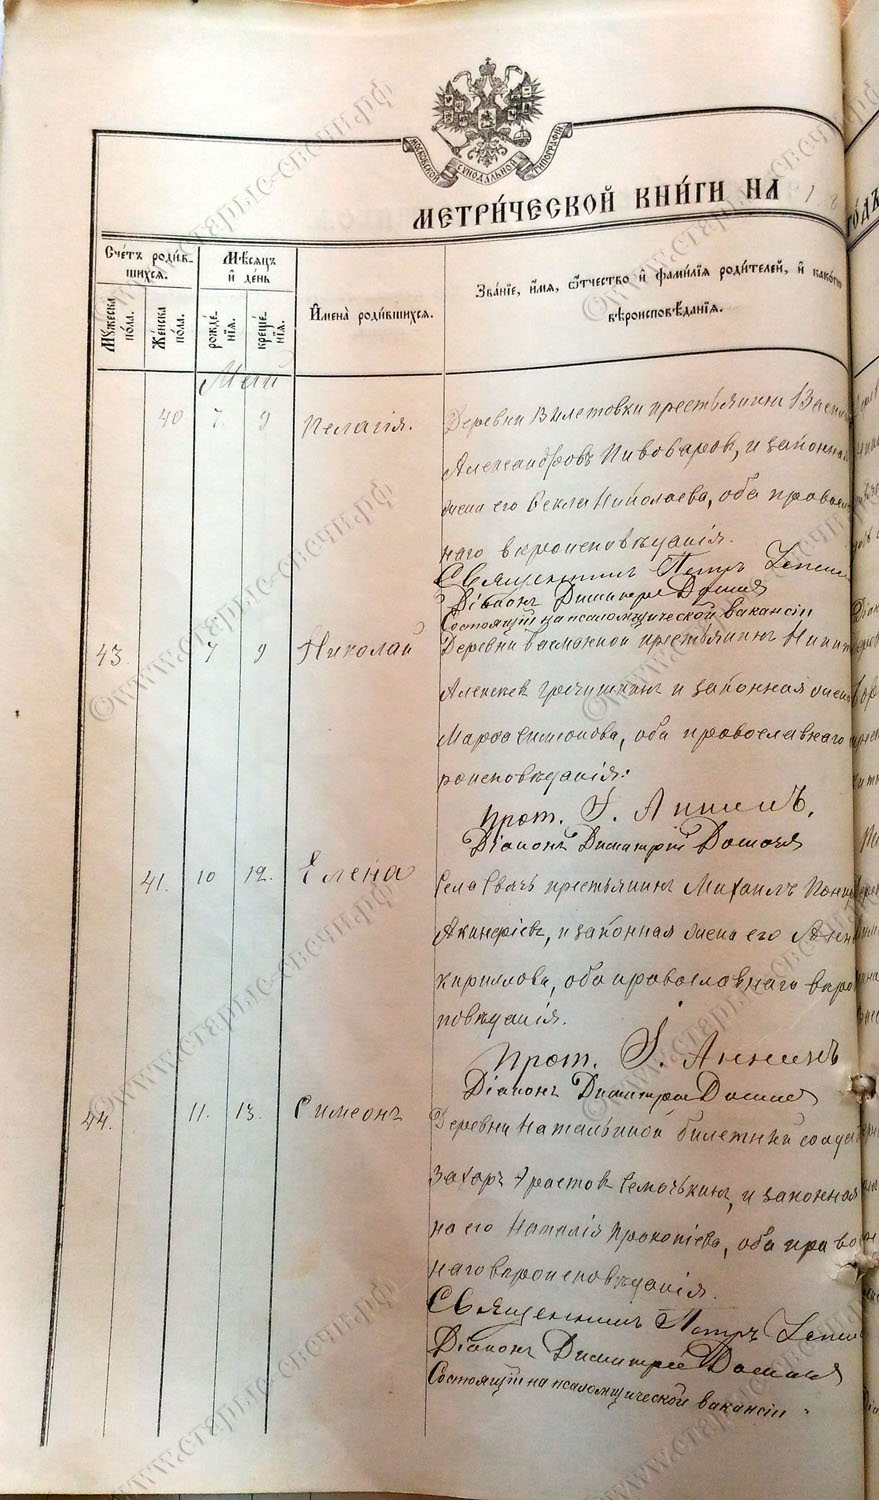 МОСКОВСКОЙ СѴНОДАЛЬНОЙ ТИПОГРАФІИ
МЕТРИ́ЧЕСКОЙ КНИ́ГИ НА 18 ГО́ДЪ
Сче́тъ роди́в-
шихся.
Мѣ́сяцъ
и҆ де́нь
Мꙋ́жеска по́ла.
Же́нска по́ла.
рожде́-
нїѧ.
креще́-
нїѧ.
И҆мена̀ роди́вшихся.
Зва́нїе, и҆́мѧ, ѻ҆́тчество и҆ фами́лїѧ роди́телей, и҆ како́гѡ
вѣроисповѣ́данїѧ.
Май
40 7 9 Пелагія. Деревни Вилетовки крестьянин
Александровъ Пивоваровъ, и законная
жена его Текла Николаева, оба
наго вѣроисповѣданія.
Священникъ Петръ
Діаконъ Димитрій
Состоящій на псаломщической вакансіи
43. 7 9 Николай Деревни крестьянинъ
Алексѣевъ Гречишкинъ и законная жена
Марфа Симонова, оба православнаго
роисповѣданія:
Прот. І.
Діаконъ Димитрій
41. 10 12. Елена Села крестьянинъ Михаилъ
Акинфіевъ, и законная жена его
Кириллова, оба православнаго вѣро
повѣданія.
Прот. І.
Діаконъ Димитрій
44. 11. 13. Симеонъ Деревни Натальиной билетный
Захаръ Ерастовъ Семочькинъ, и законная
на его Наталія Прокопіева, оба право
наго вѣроисповѣданія.
Священникъ Петръ
Діаконъ Димитрій
Состоящій на псаломщической вакансіи
©www.старые-свечи.рф